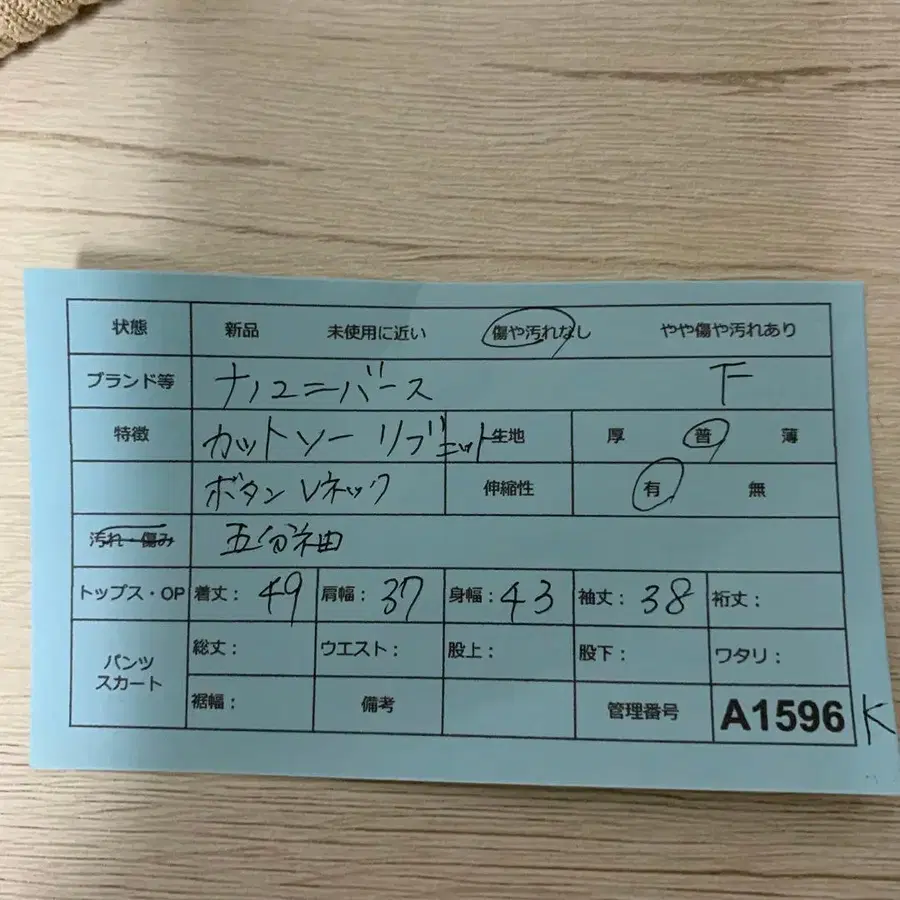 状態 新品 未使用に近い 傷や汚れなし やや傷や汚れあり
ブランド等 ナノユニバース 下
特徴 カットソー リブニット 生地 厚 普 薄
ボタン Vネック 伸縮性 有 無
汚れ・傷み 五分袖
トップス・OP 着丈: 49 肩幅: 37 身幅: 43 袖丈: 38 裄丈:
パンツ スカート 総丈: ウエスト: 股上: 股下: ワタリ:
裾幅: 備考 管理番号 A1596 K